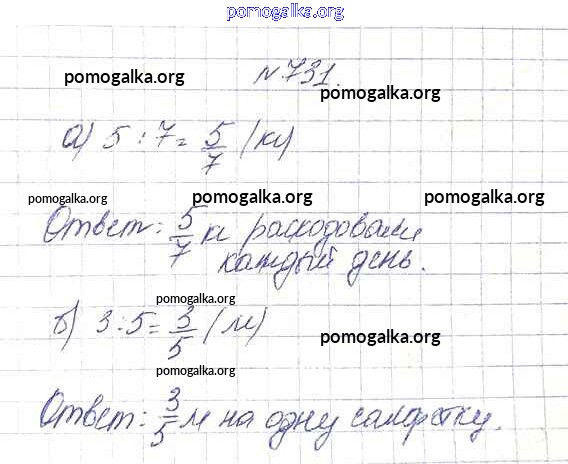 pomogalka.org
№ 731.
pomogalka.org
pomogalka.org
а) 5 : 7 = 5/7 (кг)
pomogalka.org pomogalka.org pomogalka.org
Ответ: 5/7 кг расходовали
каждый день.
pomogalka.org
б) 3 : 5 = 3/5 (м)
pomogalka.org
pomogalka.org
Ответ: 3/5 м на одну салфетку.